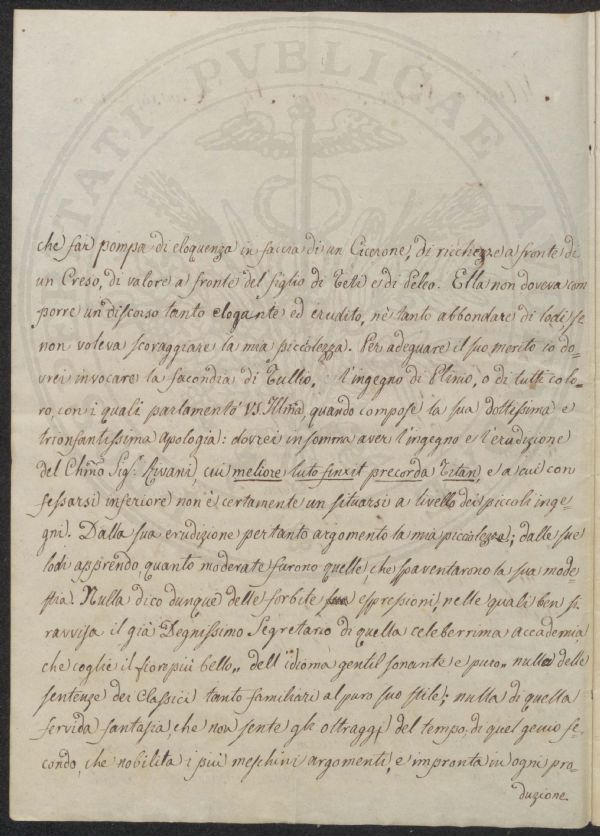 TATI PVBLICAE A
che far pompa di eloquenza in faccia di un Cicerone, di ricchezze a fronte di
un Creso, di valore a fronte del figlio di Teti e di Peleo. Ella non doveva com
porre un discorso tanto elegante ed erudito, nè tanto abbondare di lodi se
non voleva scoraggiare la mia piccolezza. Per adeguare il suo merito io do-
vrei invocare la facondia di Tullio, l'ingegno di Plinio, o di tutti colo-
ro, con i quali parlamentò VS Illma, quando compose la sua dottissima e
trionfantissima apologia: dovrei in somma aver l'ingegno e l'erudizione
del Chmo Sigr. Livani, cui meliore luto finxit precorda Titan, e a cui con
fessarsi inferiore non è certamente un situarsi a livello dei piccoli inge-
gni. Dalla sua erudizione pertanto argomento la mia piccolezza; dalle sue
lodi apprendo quanto moderate furono quelle, che spaventarono la sua mode-
stia. Nulla dico dunque delle forbite espressioni, nelle quali ben si
ravvisa il già Degnissimo Segretario di quella celeberrima accademia,
che coglie il fior più bello „ dell'idioma gentil sonante e puro „ nulla delle
sentenze dei Classici tanto familiari al puro suo stile; nulla di quella
fervida fantasia, che non sente gli oltraggi del tempo, di quel genio fe-
condo, che nobilita i più meschini argomenti, e impronta in ogni pro-
duzione